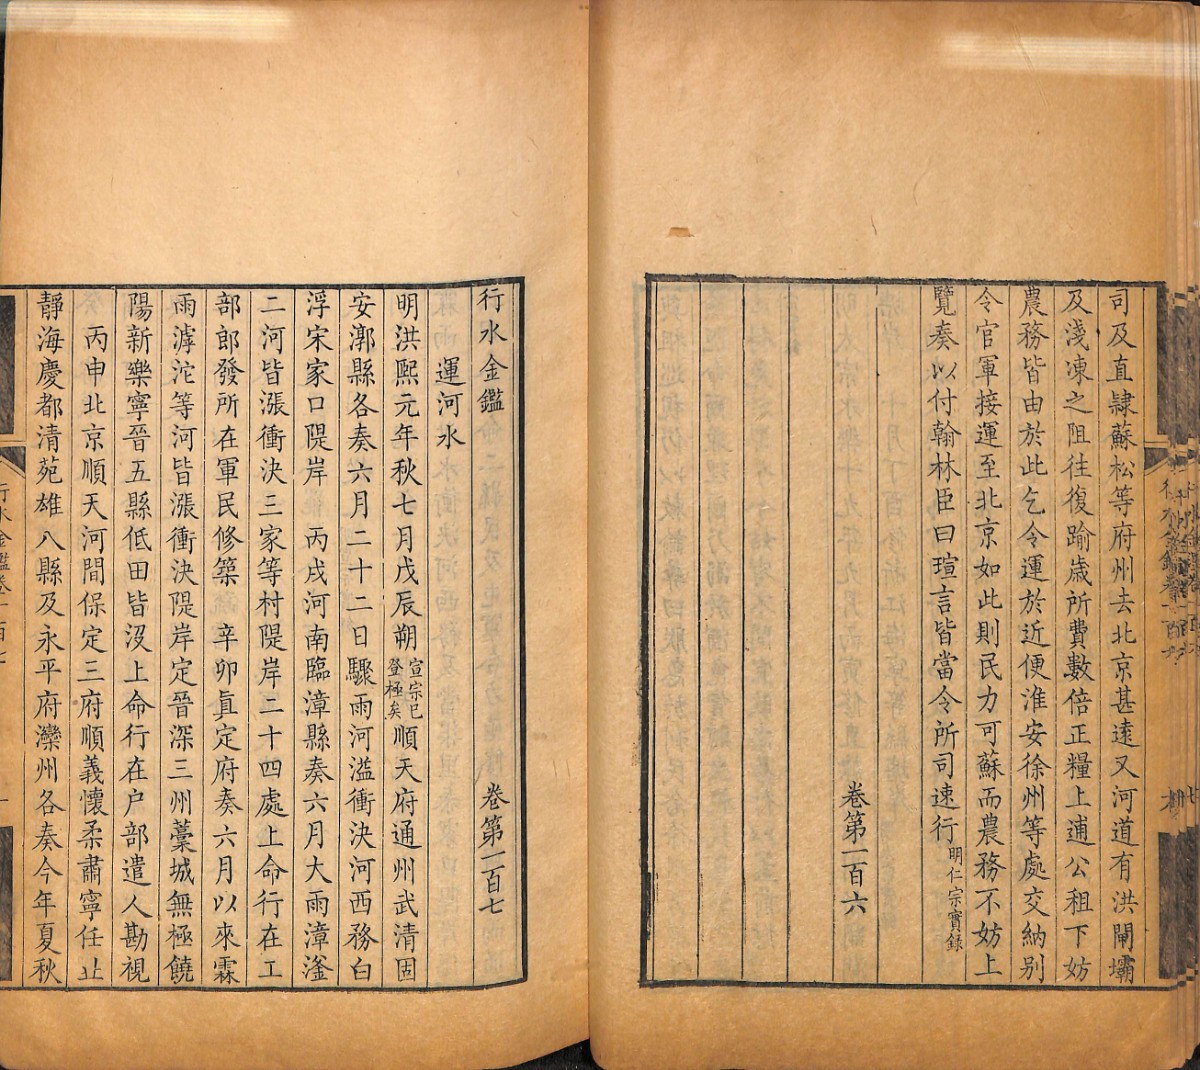 司及直隸蘇松等府州去北京甚遠又河道有洪閘壩
及淺凍之阻往復踰歲所費數倍正糧上逋公租下妨
農務皆由於此乞令運於近便淮安徐州等處交納别
令官軍接運至北京如此則民力可蘇而農務不妨上
覽奏以付翰林臣曰瑄言皆當令所司速行明仁宗實錄
卷第一百六
行水金鑑 卷第一百七
運河水
明洪熙元年秋七月戊辰朔宣宗已登極矣順天府通州武清固
安漷縣各奏六月二十二日驟雨河溢衝決河西務白
浮宋家口隄岸 丙戌河南臨漳縣奏六月大雨漳滏
二河皆漲衝決三家等村隄岸二十四處上命行在工
部郎發所在軍民修築 辛卯眞定府奏六月以來霖
雨滹沱等河皆漲衝決隄岸定晉深三州藁城無極饒
陽新樂寧晉五縣低田皆沒上命行在户部遣人勘視
丙申北京順天河間保定三府順義懷柔肅寧任丘
靜海慶都清苑雄八縣及永平府灤州各奏今年夏秋
行水金鑑卷一百七